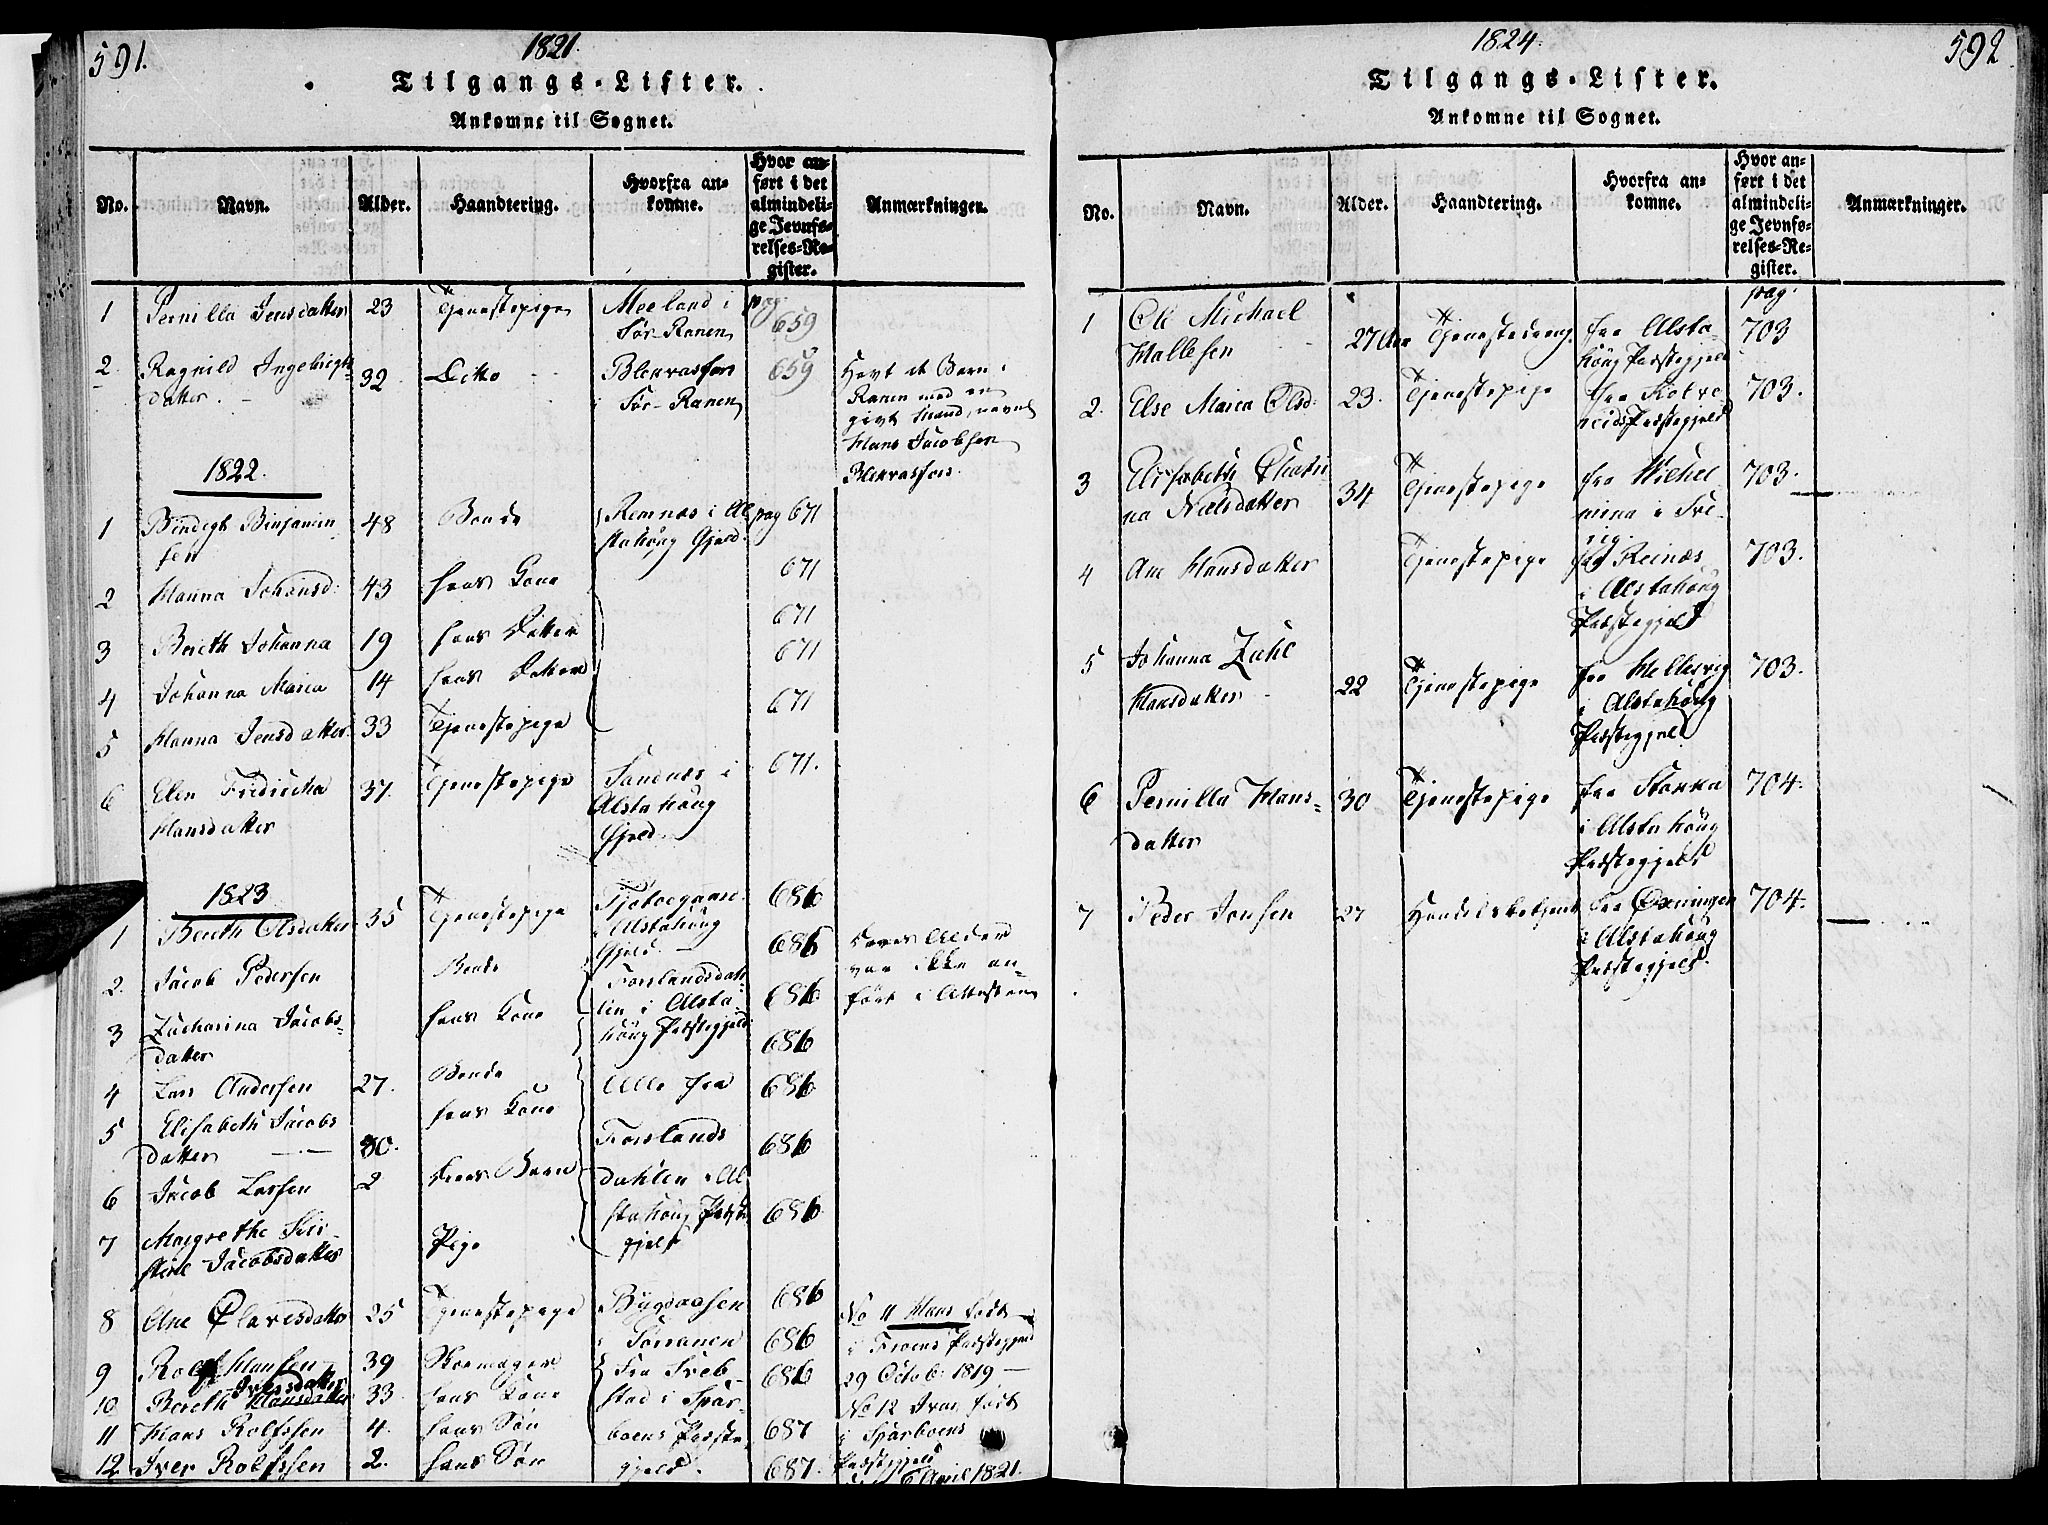 591.
1821.
Tilgangs-Lister.
Ankomne til Sognet.
No. Navn. Alder. Haandtering. Hvorfra ankomne. Hvor anført i det almindelige Jevnførelses-Register. Anmærkninger.
1 Pernilla Jensdatter 23 Tjenestepige Meeland i Sør-Ranen pag. 659
2. Ragnild Ingebrigtsdatter. 32 Ditto Blekvasfors i Sør-Ranen 659 Havt et Barn i
Ranen med en
givt Mand, navnl
Hans Jacobsen
Blekvasfors.
1822.
1 Bendigt Binjaminsen 48 Bonde Remnæs i Alstahoug Gjeld. pag 671
2 Hanna Johansd: 43 hans Kone 671
3 Bereth Johanna 19 hans Datter 671
4 Johanna Maria 14 hans Datter 671
5 Hanna Jensdatter 33 Tjenestepige 671
6 Elen Fredricha Hansdatter 37. Tjenestepige Sandnæs i Alstahoug Gjeld. 671.
1823
1 Bereth Olsdatter 35 Tjenestepige Tjøtoegaard Alstahoug Gjeld. 686
2. Jacob Pedersen Bonde Forslandsdalen i Alstahoug Præstegjeld 686 Deres Alder
var ikke anført i Attesten
3 Zacharina Jacobsdatter hans Kone 686
4 Lars Andersen 27. Bonde Alle fra 686
5 Elisabeth Jacobsdatter 30. hans Kone Forslands 686
6 Jacob Larsen 2 deres Barn dahlen i Al 686
7 Margrethe Kirstine Jacobsdatter Pige stahoug Præstegjeld 686
8 Ane Olavesdatter 25 Tjenestepige Bygdaasen i Sørranen 686 No 11 Hans født
i Præstegjeld
29 Octob: 1819
9 Rolf Hansen 39 Skomager Fra 686
10 Bereth Iversdatter Hansdatter 33 hans Kone stad i Spar- 686
11 Hans Rolfssen 4. hans Søn boens Præste 687 No 12 Iver født
i Sparboens
12 Iver Rolfssen 2. hans Søn gjeld. 687. Præstegjeld
6 April 1821.
592
1824.
Tilgangs-Lister.
Ankomne til Sognet.
No. Navn. Alder. Haandtering. Hvorfra ankomne. Hvor anført i det almindelige Jevnførelses-Register. Anmærkninger.
1 Ole Michael Hallesen 27 Aar Tjenestedreng. fra Alstahoug Præstegjeld pag. 703
2. Else Maria Olsd: 23. Tjenestepige fra Kolvereids Præstegjeld 703.
3 Elisabeth Cathrina Nielsdatter 34 Tjenestepige fra Wilhelmina i Sverig. 703.
4 Ane Hansdatter Tjenestepige fra Reinæs i Alstahoug Præstegjeld 703.
5 Johanna Zahl Hansdatter 22 Tjenestepige fra Hellesvig i Alstahoug Præstegjeld 703.
6 Pernilla Hansdatter 30 Tjenestepige fra Stokka i Alstahoug Præstegjeld 704.
7 Peder Jonsen 27 Handelsbetjent fra Øxningen i Alstahoug Præstegjeld. 704.